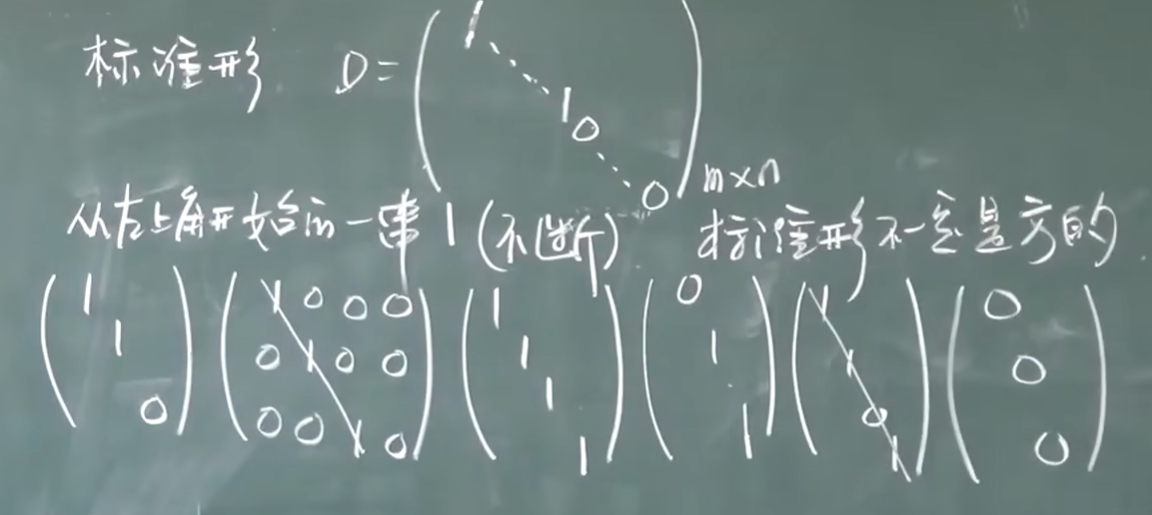 标准形 D= ( 1 ⋱ 1 0 ⋱ 0 ) m×n
从左上角开始的一串1(不断) 标准形不一定是方的.
( 1 ( 1 0 0 0 ) ( 1 ( 0 ( 1 ( 0
1 0 1 0 0 1 1 1 0
0 ) 0 0 1 0 ) 1 1 ) 0 0 )
1 ) 1 )